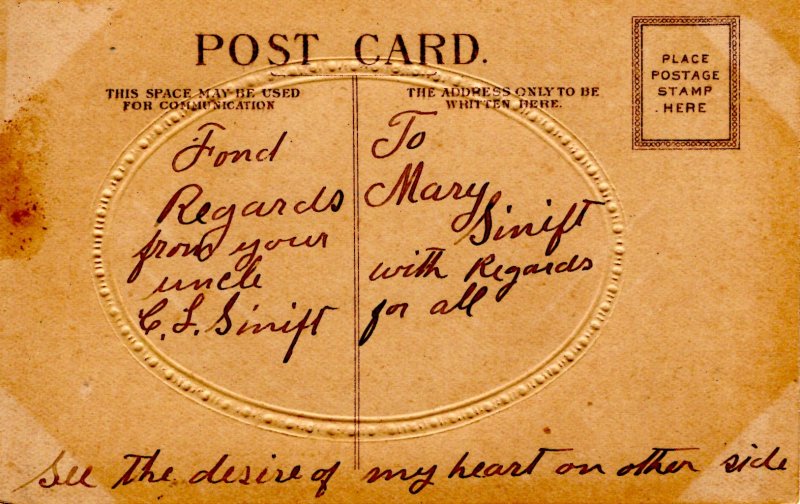 POST CARD.
THIS SPACE MAY BE USED
FOR COMMUNICATION
THE ADDRESS ONLY TO BE
WRITTEN HERE.
PLACE
POSTAGE
STAMP
HERE
Fond
Regards
from your
uncle
C. L. Sinift
To
Mary
Sinift
with Regards
for all
See the desire of my heart on other side